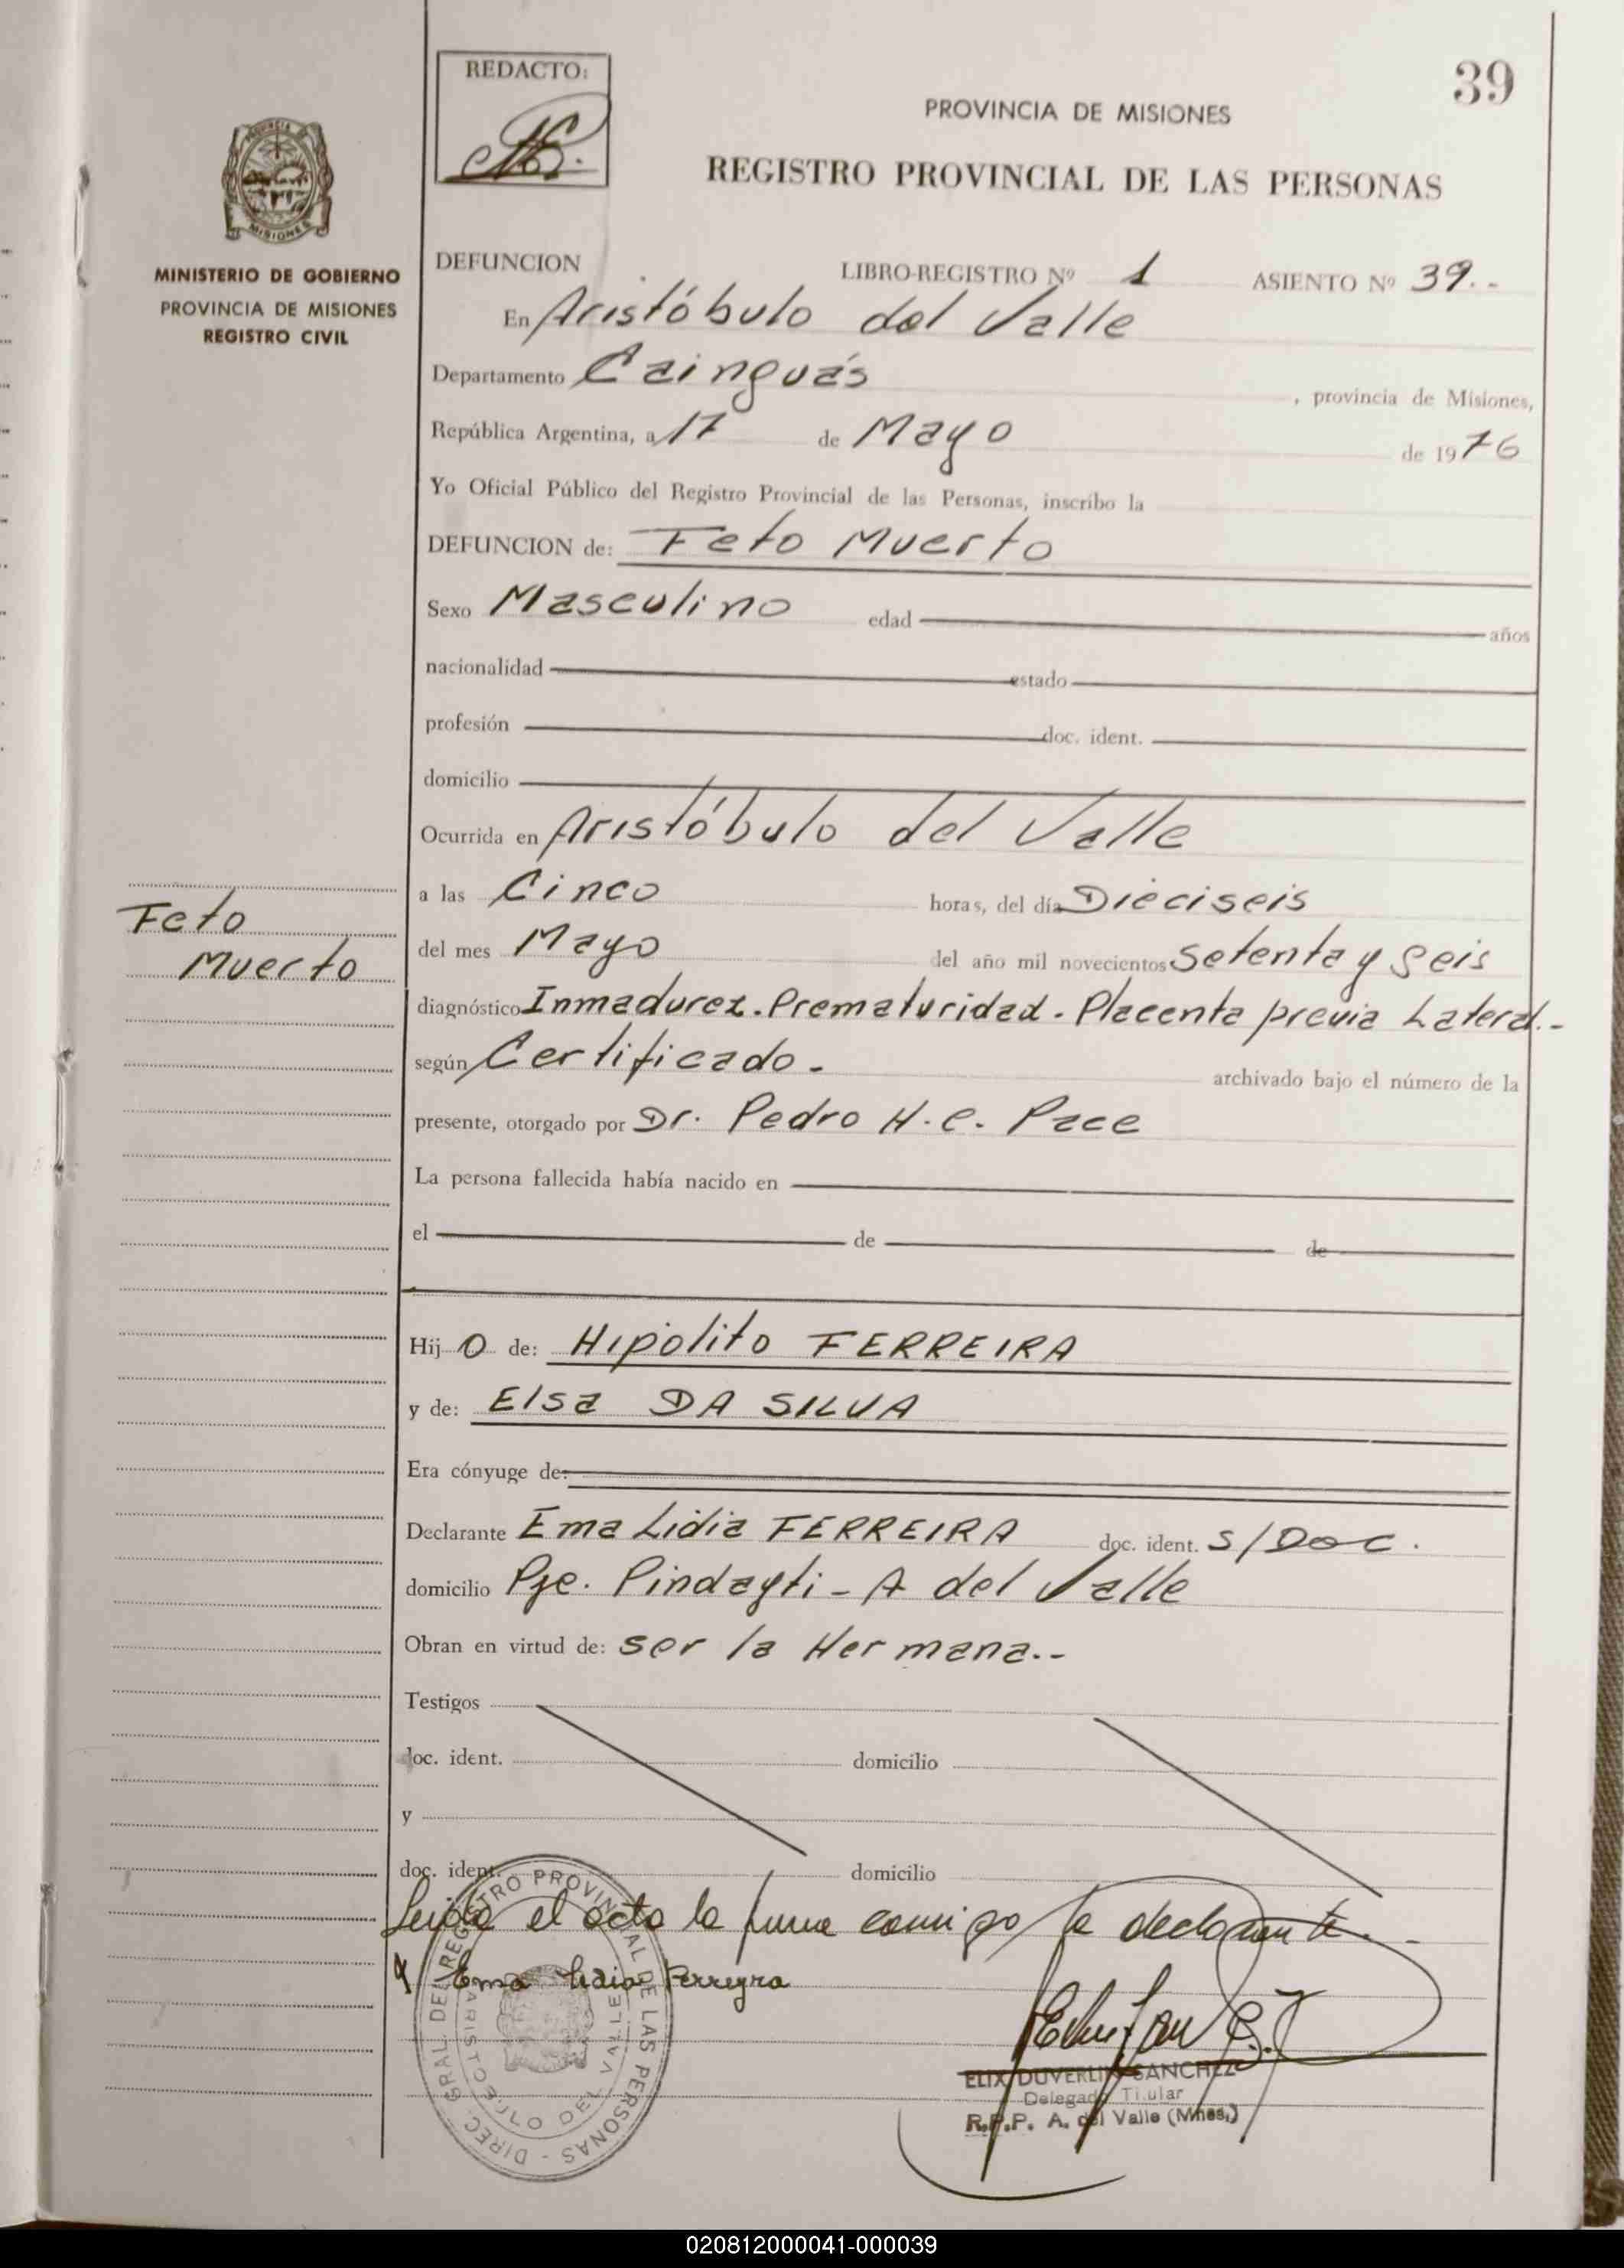 39
REDACTO:
PROVINCIA DE MISIONES
REGISTRO PROVINCIAL DE LAS PERSONAS
MISIONES
MINISTERIO DE GOBIERNO
PROVINCIA DE MISIONES
REGISTRO CIVIL
DEFUNCION LIBRO-REGISTRO Nº 1 ASIENTO Nº 39.-
En Aristóbulo del Valle
Departamento Cainguás, provincia de Misiones,
República Argentina, a 17 de Mayo de 1976
Yo Oficial Público del Registro Provincial de las Personas, inscribo la
DEFUNCION de: Feto Muerto
Sexo Masculino edad años
nacionalidad estado
profesión doc. ident.
domicilio
Ocurrida en Aristóbulo del Valle
a las Cinco horas, del día Dieciseis
Feto
Muerto
del mes Mayo del año mil novecientos Setenta y Seis
diagnóstico Inmadurez. Prematuridad. Placenta previa Lateral.-
según Certificado - archivado bajo el número de la
presente, otorgado por Dr. Pedro H. C. Pace
La persona fallecida había nacido en
el de de
Hijo de: Hipólito FERREIRA
y de: Elsa DA SILVA
Era cónyuge de:
Declarante Ema Lidia FERREIRA doc. ident. S/DOC.
domicilio Pje. Pindayti - A del Valle
Obran en virtud de: ser la Hermana.-
Testigos
doc. ident. domicilio
y
doc. ident. domicilio
Leida el acta la firma conmigo la declarante.-
Ema Lidia Ferreyra
DIREC. GRAL. DEL REGISTRO PROVINCIAL DE LAS PERSONAS -
ARISTOBULO DEL VALLE
ELIX DUVERLI SANCHEZ
Delegado Titular
R.P.P. A. del Valle (Mnes.)
020812000041-000039